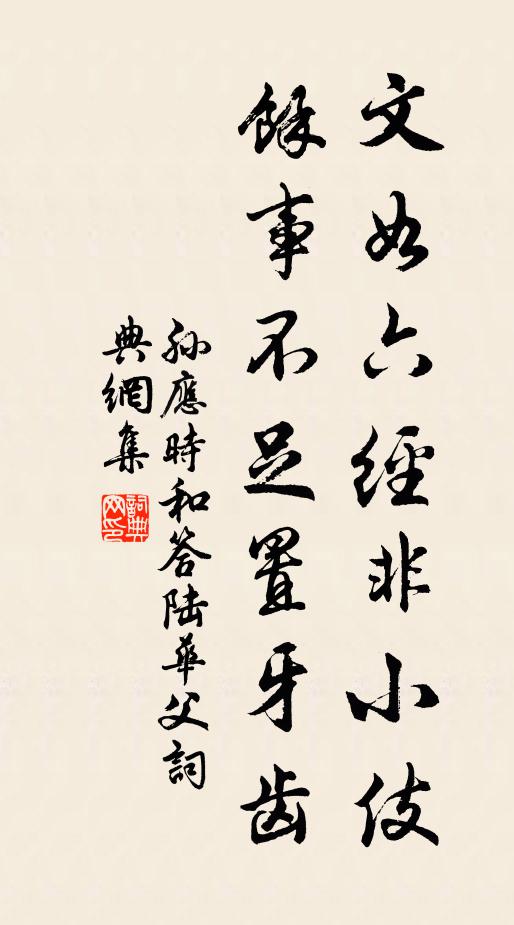 文如六經非小伎
餘事不足置牙齿
孙應時和答陆華父詞
典網集
詞典网印